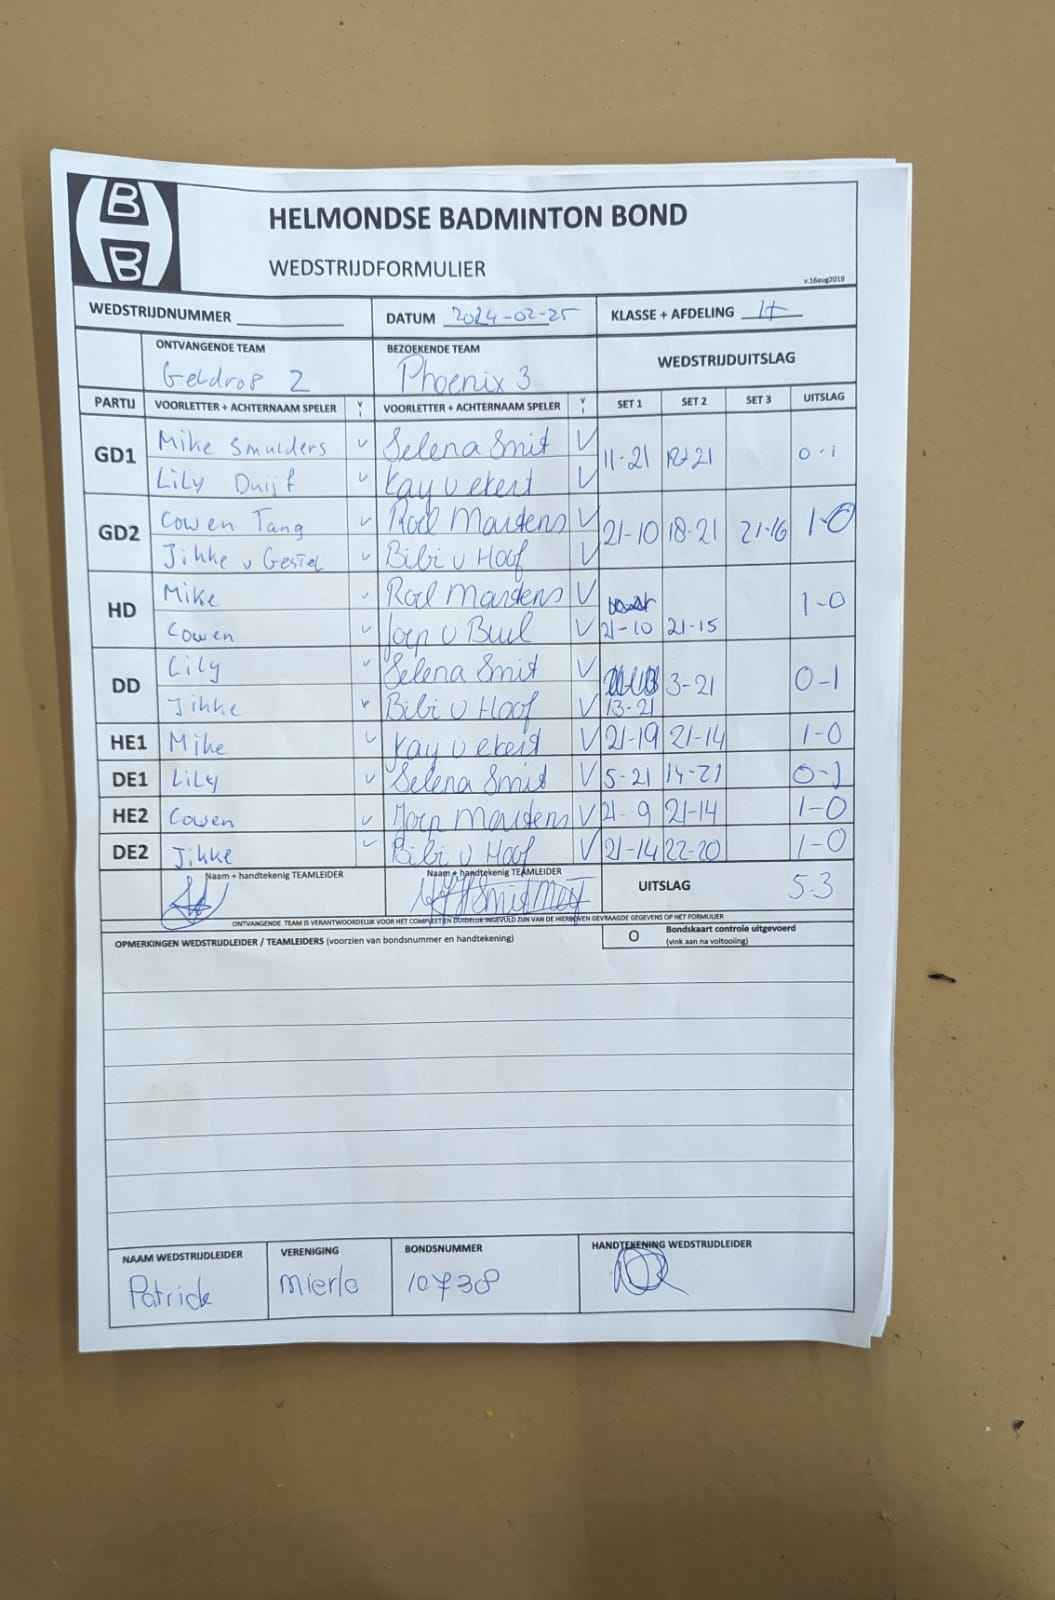 B
B
HELMONDSE BADMINTON BOND
WEDSTRIJDFORMULIER
v.16aug2019
WEDSTRIJDNUMMER DATUM 2024-02-25 KLASSE + AFDELING
ONTVANGENDE TEAM BEZOEKENDE TEAM WEDSTRIJDUITSLAG
Geldrop 2 Phoenix 3
PARTIJ VOORLETTER + ACHTERNAAM SPELER V VOORLETTER + ACHTERNAAM SPELER V SET 1 SET 2 SET 3 UITSLAG
GD1 Mike Smulders v Selena Smit V 11-21 0-1
Lily Duijf v Kay v ekert V
GD2 Cowen Tang v Roel Martens V 21-10 18-21 21-16 1-0
Jikke v Gestel v Bibi v Hoof V
HD Mike v Roel Martens V 21-10 21-15 1-0
Cowen v Joep v Buul V
DD Lily v Selena Smit V 13-21 3-21 0-1
Jikke v Bibi v Hoof V
HE1 Mike v Kay v ekert V 21-19 21-14 1-0
DE1 Lily v Selena Smit V 5-21 14-21 0-1
HE2 Cowen v Joep Martens V 21-9 21-14 1-0
DE2 Jikke v Bibi v Hoof V 21-14 22-20 1-0
Naam + handtekenig TEAMLEIDER Naam + handtekenig TEAMLEIDER UITSLAG 5-3
ONTVANGENDE TEAM IS VERANTWOORDELIJK VOOR HET COMPLEET EN DUIDELIJK INGEVULD ZIJN VAN DE HIERBOVEN GEVRAAGDE GEGEVENS OP HET FORMULIER
OPMERKINGEN WEDSTRIJDLEIDER / TEAMLEIDERS (voorzien van bondsnummer en handtekening) O Bondskaart controle uitgevoerd
(vink aan na voltooiing)
NAAM WEDSTRIJDLEIDER VERENIGING BONDSNUMMER HANDTEKENING WEDSTRIJDLEIDER
Patrick Mierlo 10738